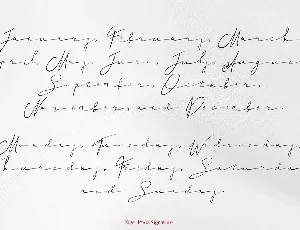 January, February, March
April, May, June, July, August
September, October,
November and December.
Monday, Tuesday, Wednesday
Thursday, Friday, Saturday
and Sunday